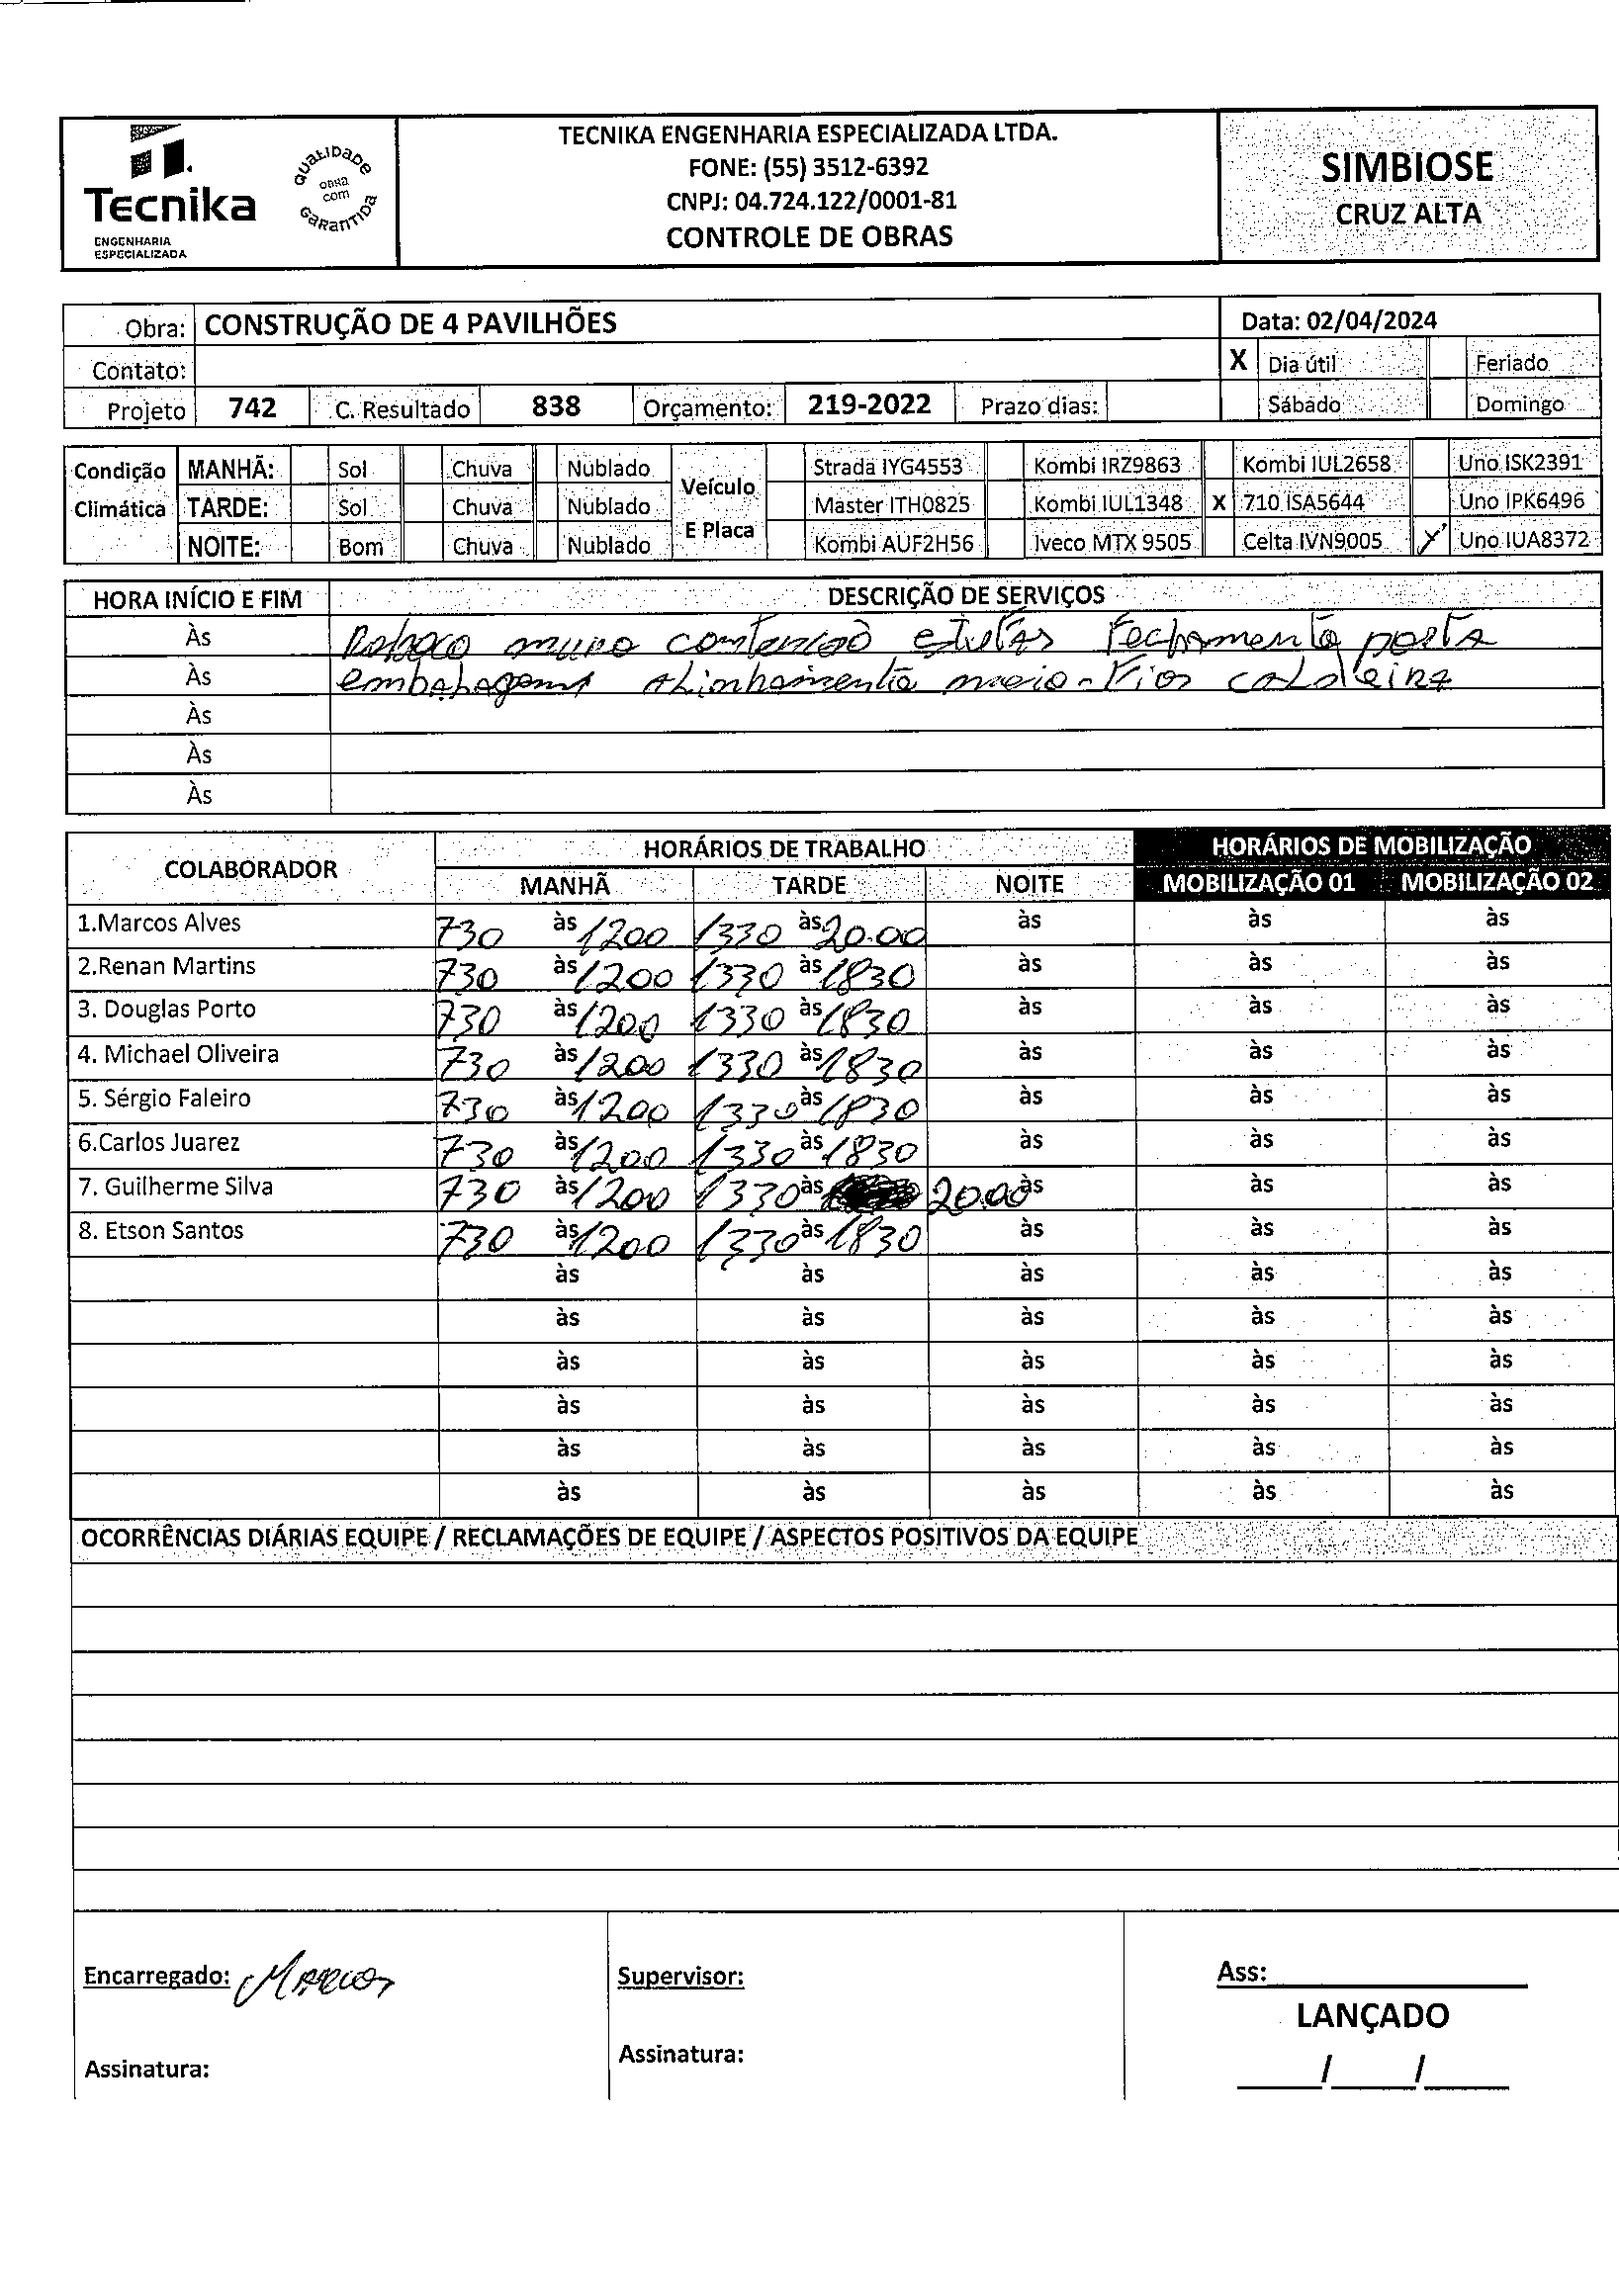 Tecnika
ENGENHARIA
ESPECIALIZADA
QUALIDADE
OBRA
COM
GARANTIDA
TECNIKA ENGENHARIA ESPECIALIZADA LTDA.
FONE: (55) 3512-6392
CNPJ: 04.724.122/0001-81
CONTROLE DE OBRAS
SIMBIOSE
CRUZ ALTA
Obra: CONSTRUÇÃO DE 4 PAVILHÕES Data: 02/04/2024
Contato: X Dia útil Feriado
Projeto 742 C. Resultado 838 Orçamento: 219-2022 Prazo dias: Sábado Domingo
Condição MANHÃ: Sol Chuva Nublado Veículo Strada IYG4553 Kombi IRZ9863 Kombi IUL2658 Uno ISK2391
Climática TARDE: Sol Chuva Nublado Master ITH0825 Kombi IUL1348 X 710 ISA5644 Uno IPK6496
NOITE: Bom Chuva Nublado E Placa Kombi AUF2H56 Iveco MTX 9505 Celta IVN9005 X Uno IUA8372
HORA INÍCIO E FIM DESCRIÇÃO DE SERVIÇOS
Às muro Fechamento porta
Às alinhamento meio-Fios caldeira
Às
Às
Às
COLABORADOR HORÁRIOS DE TRABALHO HORÁRIOS DE MOBILIZAÇÃO
MANHÃ TARDE NOITE MOBILIZAÇÃO 01 MOBILIZAÇÃO 02
1.Marcos Alves 730 às 1200 1330 às 20.00 às às às
2.Renan Martins 730 às 1200 1330 às 1830 às às às
3. Douglas Porto 730 às 1200 1330 às 1830 às às às
4. Michael Oliveira 730 às 1200 1330 às 1830 às às às
5. Sérgio Faleiro 730 às 1200 1330 às 1830 às às às
6.Carlos Juarez 730 às 1200 1330 às 1830 às às às
7. Guilherme Silva 730 às 1200 1330 às 20.00 às às às
8. Etson Santos 730 às 1200 1330 às 1830 às às às
às às às às às
às às às às às
às às às às às
às às às às às
às às às às às
às às às às às
OCORRÊNCIAS DIÁRIAS EQUIPE / RECLAMAÇÕES DE EQUIPE / ASPECTOS POSITIVOS DA EQUIPE
Encarregado: Marcos Supervisor: Ass:
LANÇADO
Assinatura: Assinatura: / /